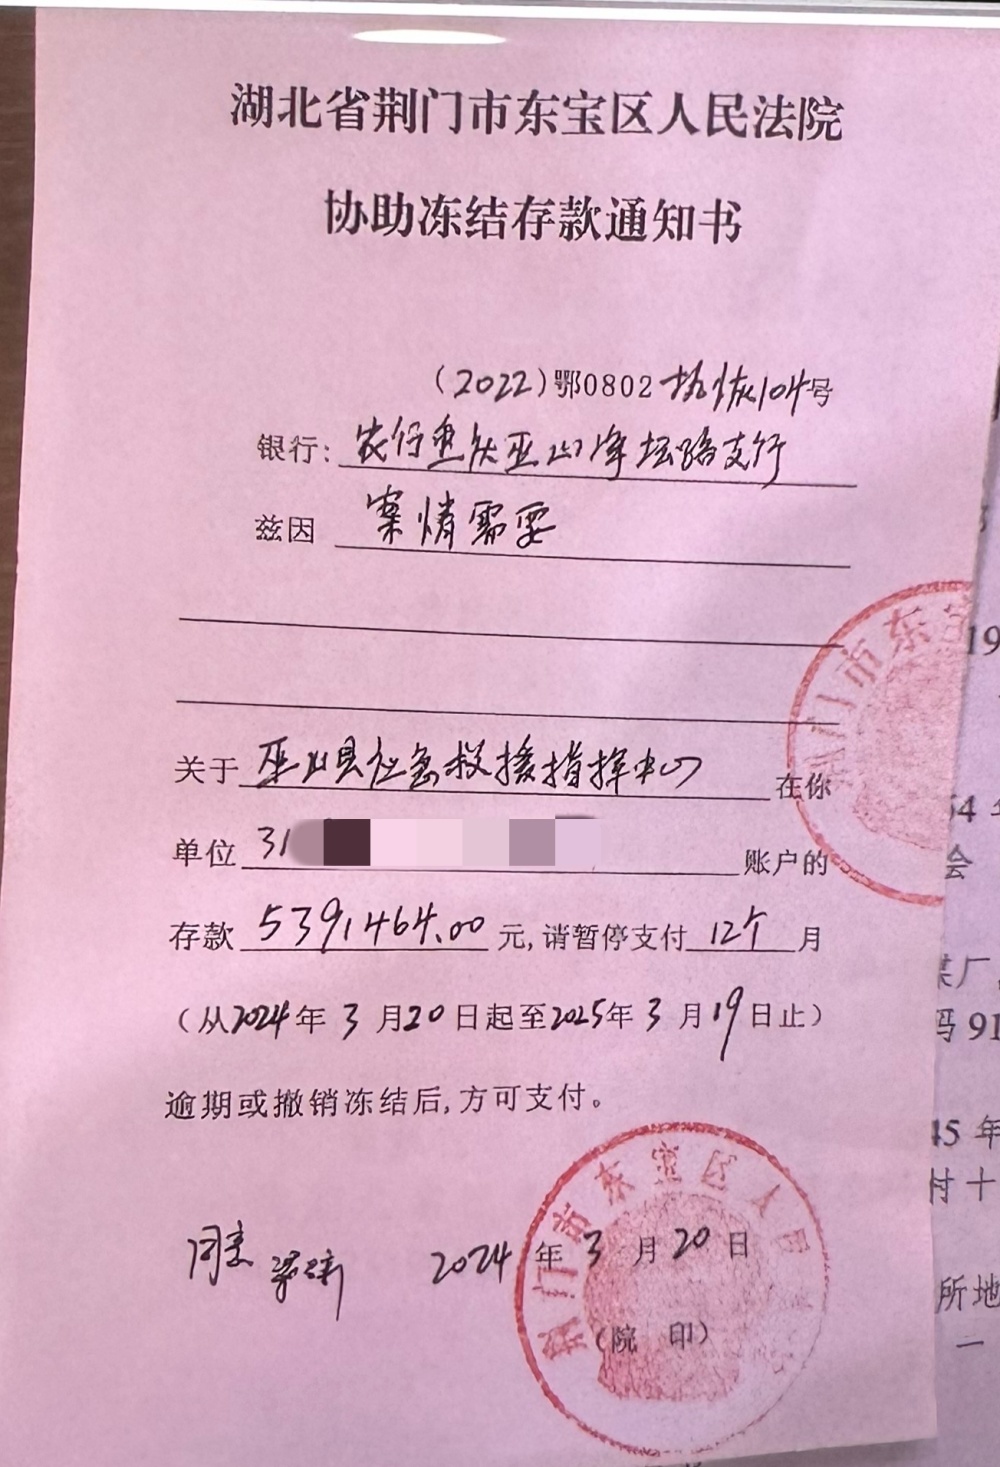 湖北省荆门市东宝区人民法院
协助冻结存款通知书
（2022）鄂0802执恢104号
银行：农行重庆巫山净坛路支行
兹因 案情需要
关于 巫山县应急救援指挥中心 在你
单位 31 账户的
存款 5391464.00 元,请暂停支付 12个 月
（从2024年3月20日起至2025年3月19日止）
逾期或撤销冻结后,方可支付。
同意 2024年3月20日
（院 印）
荆门市东宝区人民
门市东宝
19
54年
会
某厂
码91
45年
付十
所地
一